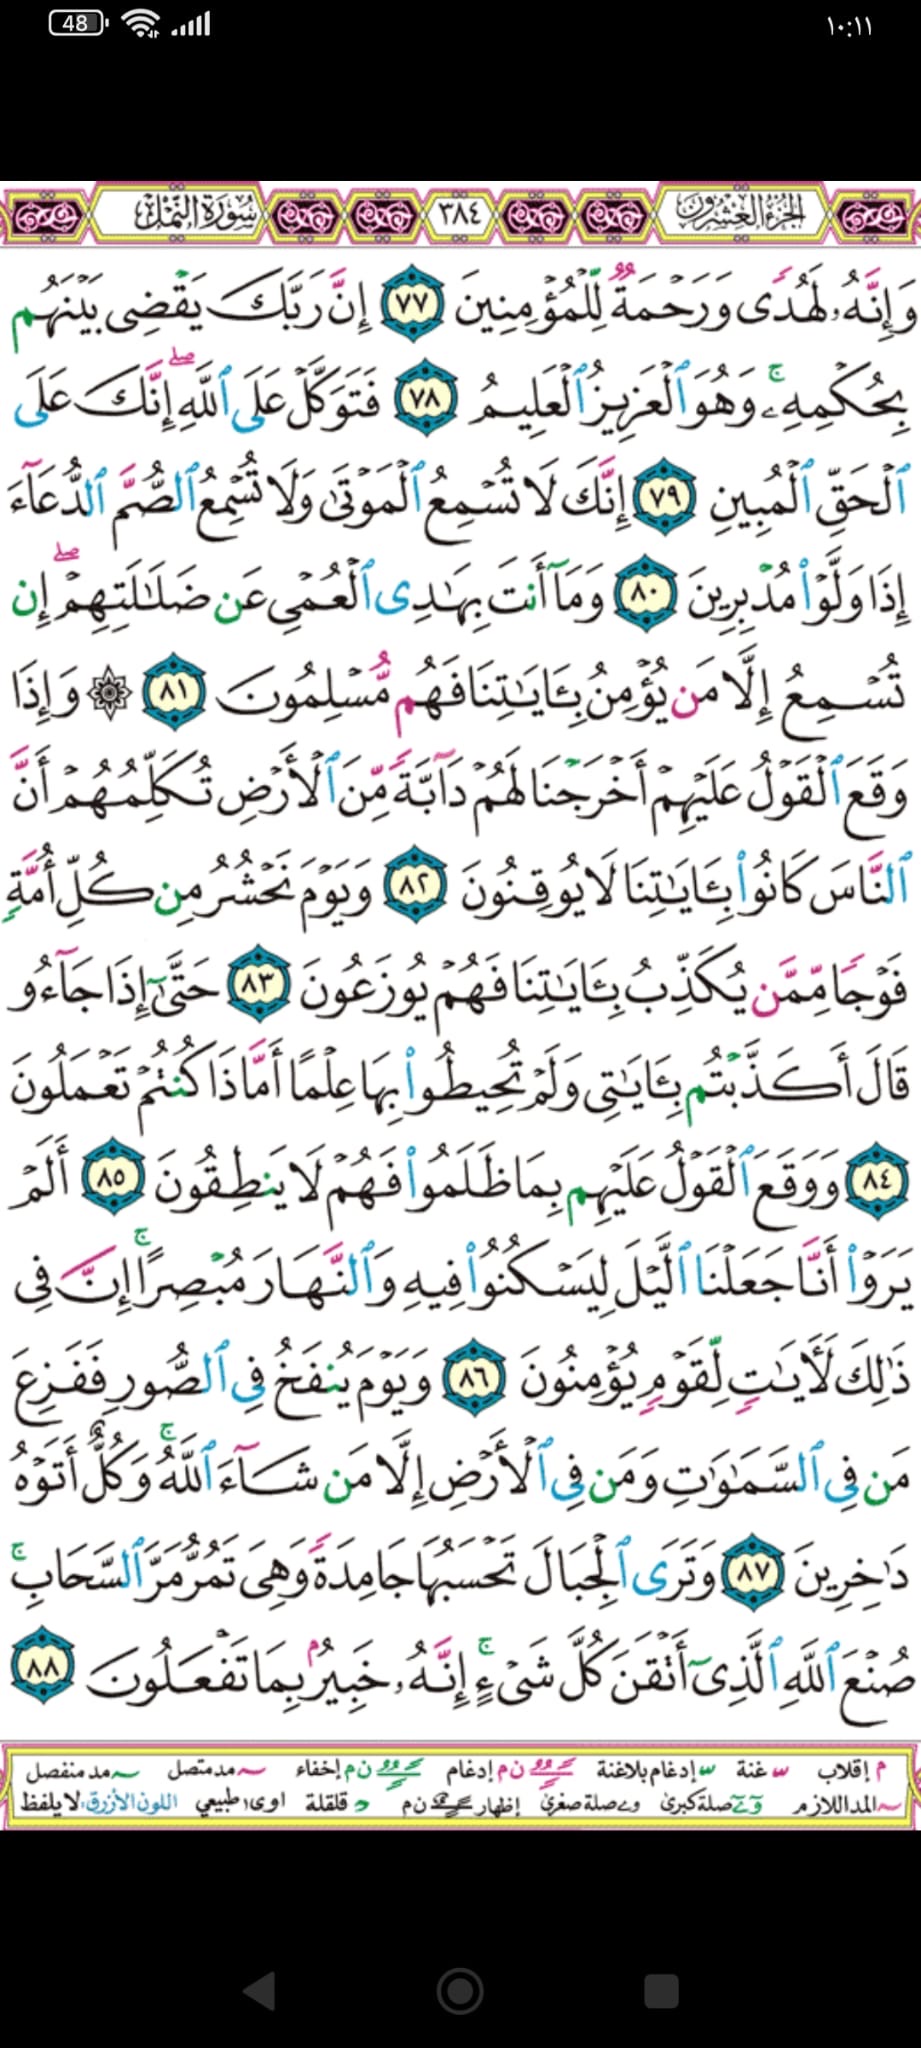 48
١٠:١١
الجزء العشرون ٣٨٤ سورة النمل
وَإِنَّهُۥ لَهُدًى وَرَحْمَةٌ لِّلْمُؤْمِنِينَ ٧٧ إِنَّ رَبَّكَ يَقْضِى بَيْنَهُم
بِحُكْمِهِۦ ۚ وَهُوَ ٱلْعَزِيزُ ٱلْعَلِيمُ ٧٨ فَتَوَكَّلْ عَلَى ٱللَّهِ ۖ إِنَّكَ عَلَى
ٱلْحَقِّ ٱلْمُبِينِ ٧٩ إِنَّكَ لَا تُسْمِعُ ٱلْمَوْتَىٰ وَلَا تُسْمِعُ ٱلصُّمَّ ٱلدُّعَآءَ
إِذَا وَلَّوْا۟ مُدْبِرِينَ ٨٠ وَمَآ أَنتَ بِهَـٰدِى ٱلْعُمْىِ عَن ضَلَـٰلَتِهِمْ ۖ إِن
تُسْمِعُ إِلَّا مَن يُؤْمِنُ بِـَٔايَـٰتِنَا فَهُم مُّسْلِمُونَ ٨١ ۞ وَإِذَا
وَقَعَ ٱلْقَوْلُ عَلَيْهِمْ أَخْرَجْنَا لَهُمْ دَآبَّةً مِّنَ ٱلْأَرْضِ تُكَلِّمُهُمْ أَنَّ
ٱلنَّاسَ كَانُوا۟ بِـَٔايَـٰتِنَا لَا يُوقِنُونَ ٨٢ وَيَوْمَ نَحْشُرُ مِن كُلِّ أُمَّةٍ
فَوْجًا مِّمَّن يُكَذِّبُ بِـَٔايَـٰتِنَا فَهُمْ يُوزَعُونَ ٨٣ حَتَّىٰٓ إِذَا جَآءُو
قَالَ أَكَذَّبْتُم بِـَٔايَـٰتِى وَلَمْ تُحِيطُوا۟ بِهَا عِلْمًا أَمَّاذَا كُنتُمْ تَعْمَلُونَ
٨٤ وَوَقَعَ ٱلْقَوْلُ عَلَيْهِم بِمَا ظَلَمُوا۟ فَهُمْ لَا يَنطِقُونَ ٨٥ أَلَمْ
يَرَوْا۟ أَنَّا جَعَلْنَا ٱلَّيْلَ لِيَسْكُنُوا۟ فِيهِ وَٱلنَّهَارَ مُبْصِرًا ۚ إِنَّ فِى
ذَٰلِكَ لَـَٔايَـٰتٍ لِّقَوْمٍ يُؤْمِنُونَ ٨٦ وَيَوْمَ يُنفَخُ فِى ٱلصُّورِ فَفَزِعَ
مَن فِى ٱلسَّمَـٰوَٰتِ وَمَن فِى ٱلْأَرْضِ إِلَّا مَن شَآءَ ٱللَّهُ ۚ وَكُلٌّ أَتَوْهُ
دَٰخِرِينَ ٨٧ وَتَرَى ٱلْجِبَالَ تَحْسَبُهَا جَامِدَةً وَهِىَ تَمُرُّ مَرَّ ٱلسَّحَابِ ۚ
صُنْعَ ٱللَّهِ ٱلَّذِىٓ أَتْقَنَ كُلَّ شَىْءٍ ۚ إِنَّهُۥ خَبِيرٌۢ بِمَا تَفْعَلُونَ ٨٨
م إقلاب غنة إدغام بلاغنة ن م إدغام ن م إخفاء مد متصل مد منفصل
المد اللازم صلة كبرى صلة صغرى إظهار ن م قلقلة اوى طبيعي اللون الأزرق: لا يلفظ